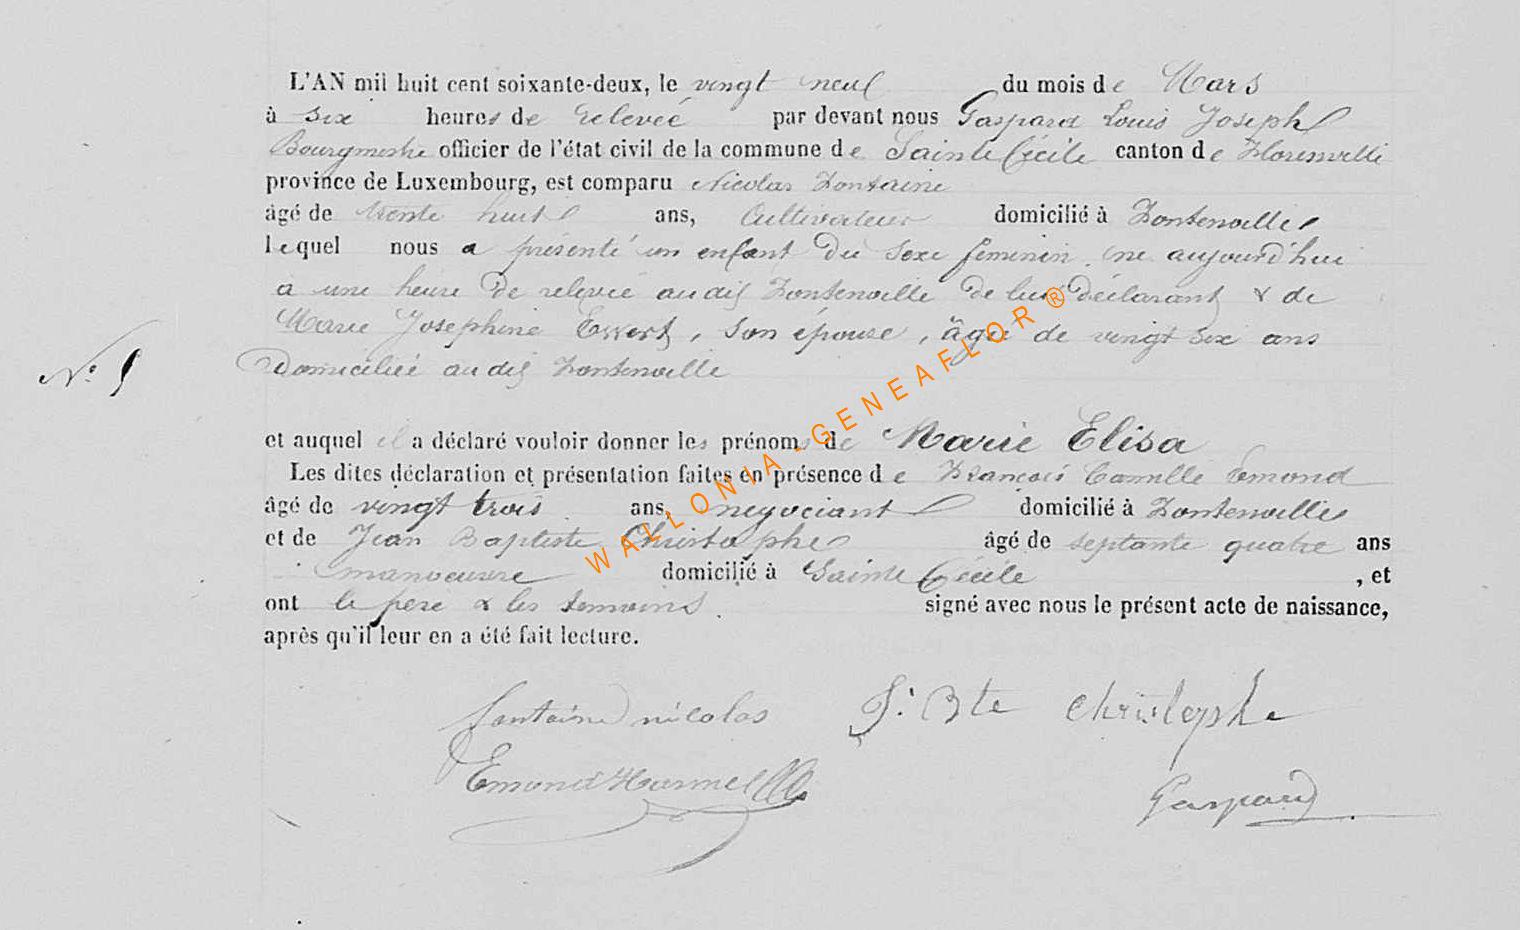 L'AN mil huit cent soixante-deux, le vingt neuf du mois de Mars
à six heures de relevée par devant nous Gaspard Louis Joseph
Bourgmestre officier de l'état civil de la commune de Sainte Cécile canton de Florenville
province de Luxembourg, est comparu Nicolas Fontaine
âgé de trente huit ans, Cultivateur domicilié à Fontenoille
lequel nous a présenté un enfant du sexe féminin né aujourd'hui
à une heure de relevée audit Fontenoille de lui déclarant & de
Marie Josephine Ewert, son épouse, âgée de vingt six ans
Domiciliée audit Fontenoille
N° 9
et auquel il a déclaré vouloir donner les prénoms de Marie Elisa
Les dites déclaration et présentation faites en présence de François Camille Emond
âgé de vingt trois ans, negociant domicilié à Fontenoille
et de Jean Baptiste Christophe âgé de septante quatre ans
manoeuvre domicilié à Sainte Cécile , et
ont le père & les temoins signé avec nous le présent acte de naissance,
après qu'il leur en a été fait lecture.
fontaine nicolas J. Bte christophe
Emond Harmel
Gaspard
WALLONIA-GENEAFLOR®